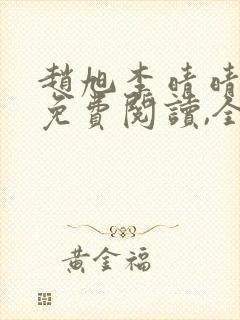 趙旭李晴晴
免費閱讀,全
黃金福